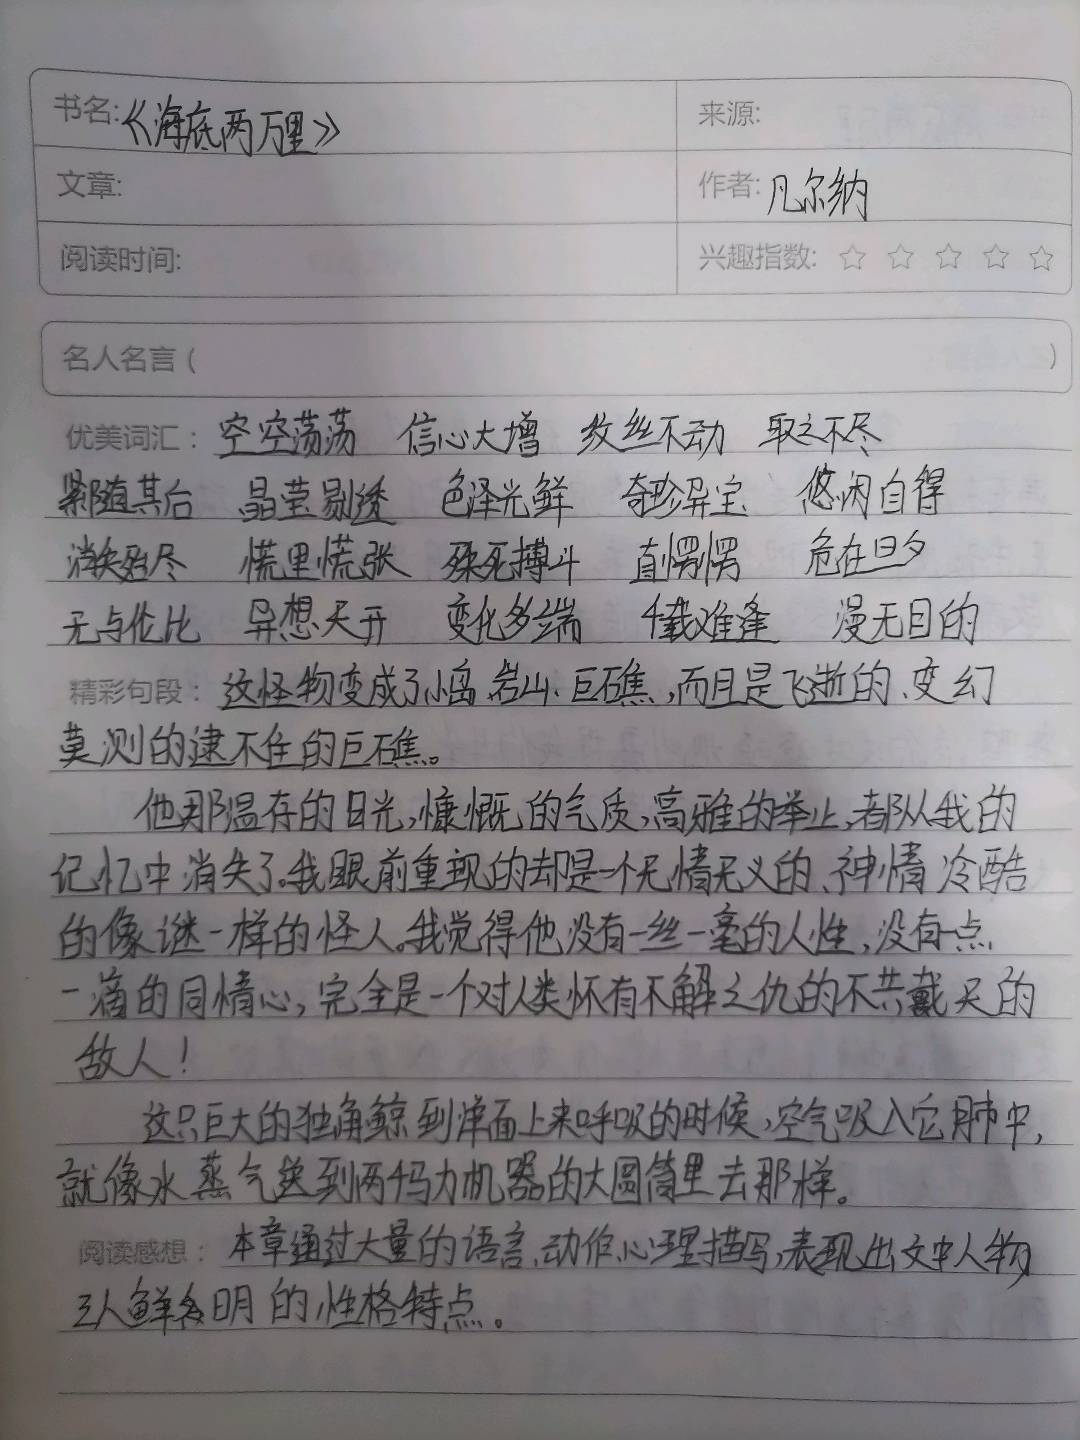 书名:《海底两万里》 来源:
文章: 作者:凡尔纳
阅读时间: 兴趣指数: ☆ ☆ ☆ ☆ ☆
名人名言( )
优美词汇: 空空荡荡 信心大增 纹丝不动 取之不尽
紧随其后 晶莹剔透 色泽光鲜 奇珍异宝 悠闲自得
消失殆尽 慌里慌张 殊死搏斗 直愣愣 危在旦夕
无与伦比 异想天开 变化多端 千载难逢 漫无目的
精彩句段: 这怪物变成了小岛、岩山、巨礁,而且是飞逝的、变幻
莫测的逮不住的巨礁。
他那温存的目光,慷慨的气质,高雅的举止,都从我的
记忆中消失了。我眼前重现的却是一个无情无义的、神情冷酷
的像谜一样的怪人。我觉得他没有一丝一毫的人性,没有一点
一滴的同情心,完全是一个对人类怀有不解之仇的不共戴天的
敌人!
这只巨大的独角鲸到洋面上来呼吸的时候,空气吸入它肺中,
就像水蒸气送到两千马力机器的大圆筒里去那样。
阅读感想: 本章通过大量的语言、动作、心理描写,表现出文中人物
三人鲜明的性格特点。